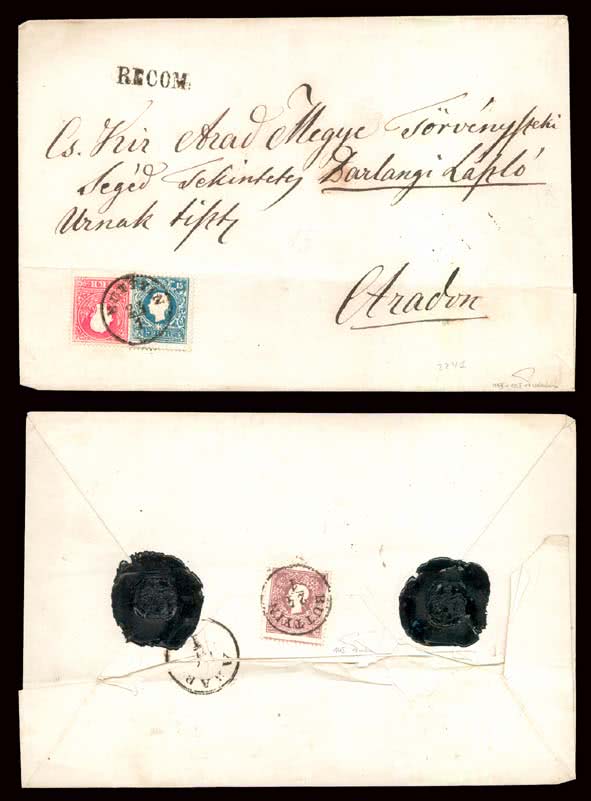 RECOM.
Cs. Kir Arad Megye Törvényszeki
Segéd Tekintetes Barlangi László
Urnak tiszt
Aradon
BUTTYIN
15
3341
BUTTYIN
ARAD